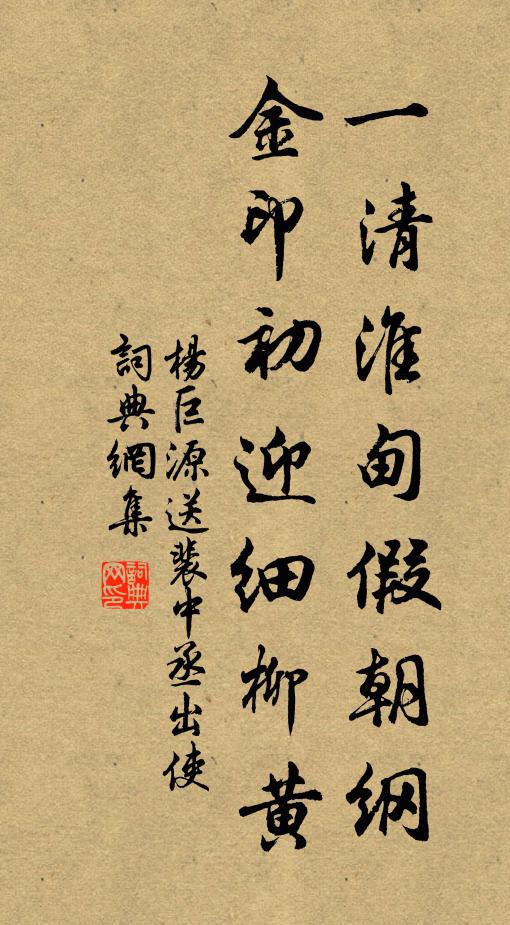 一清淮甸假朝纲
金印初迎细柳黄
楊巨源送裴中丞出使
詞典網集
詞典網印